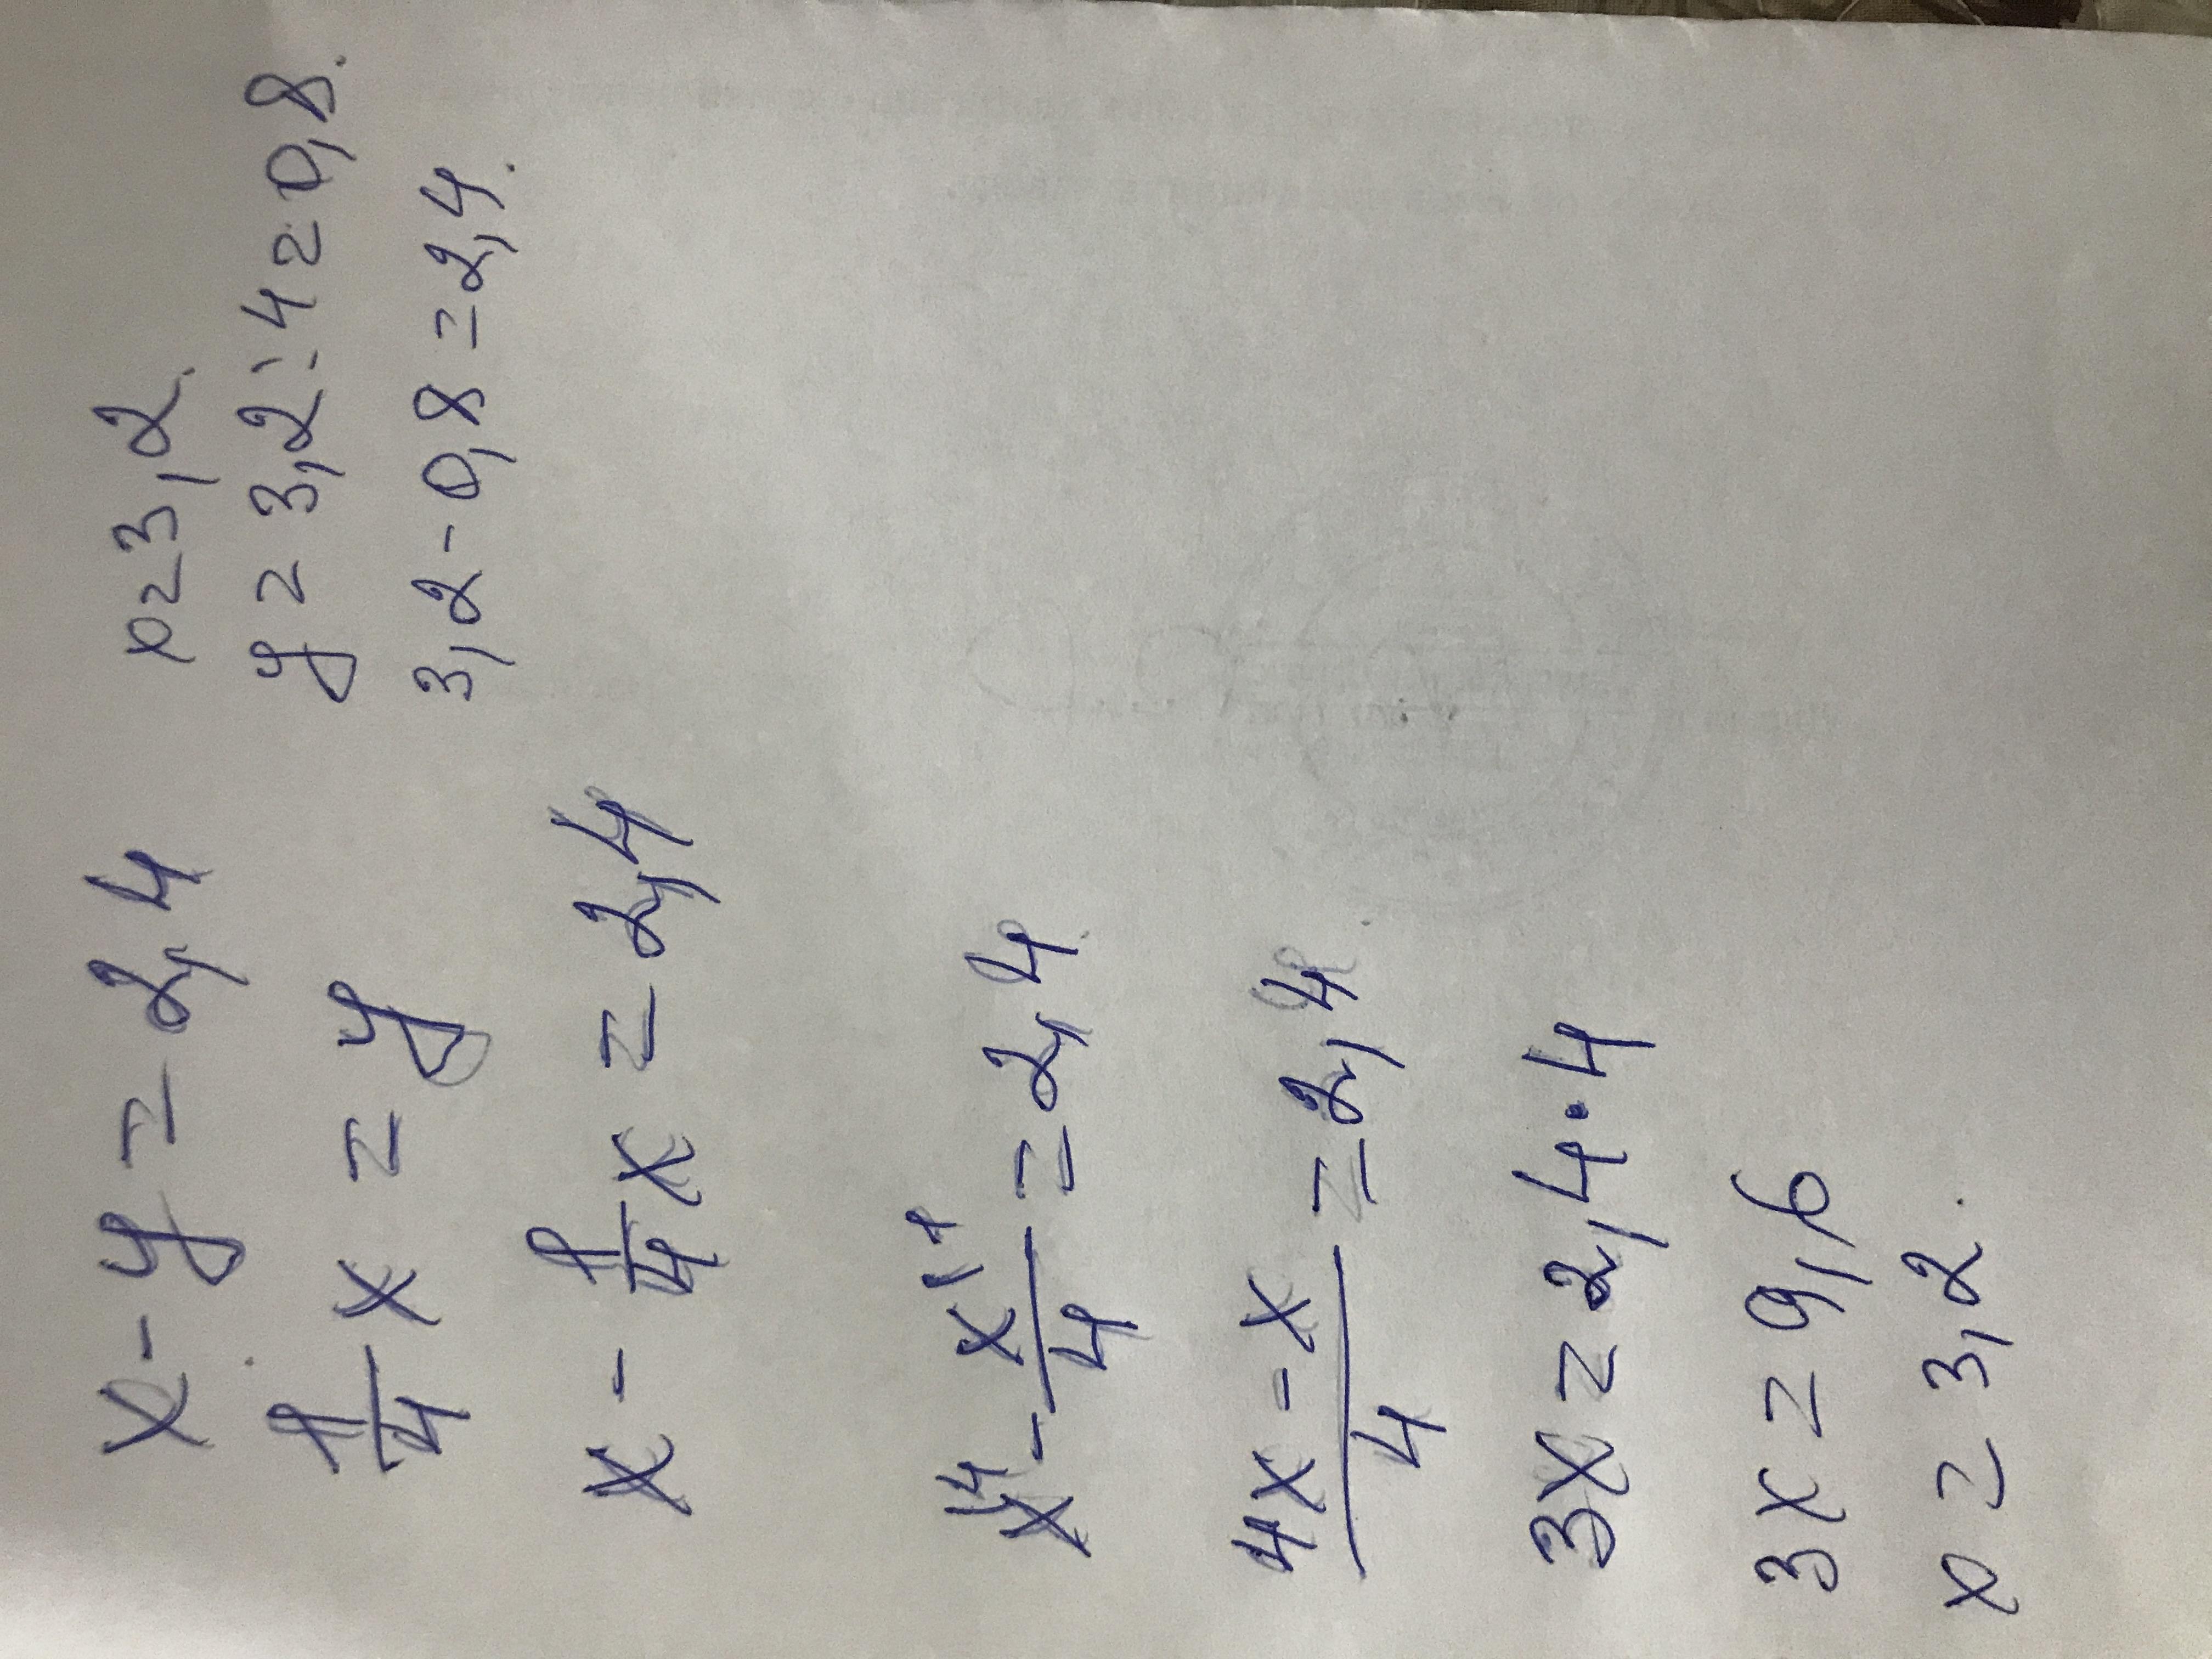 x - y = 2,4
1/4 x = y
x - 1/4 x = 2,4
x^4 - x^1/4 = 2,4
4x - x/4 = 2,4
3x = 2,4 · 4
3x = 9,6
x = 3,2.
x = 3,2.
y = 3,2 : 4 = 0,8.
3,2 - 0,8 = 2,4.